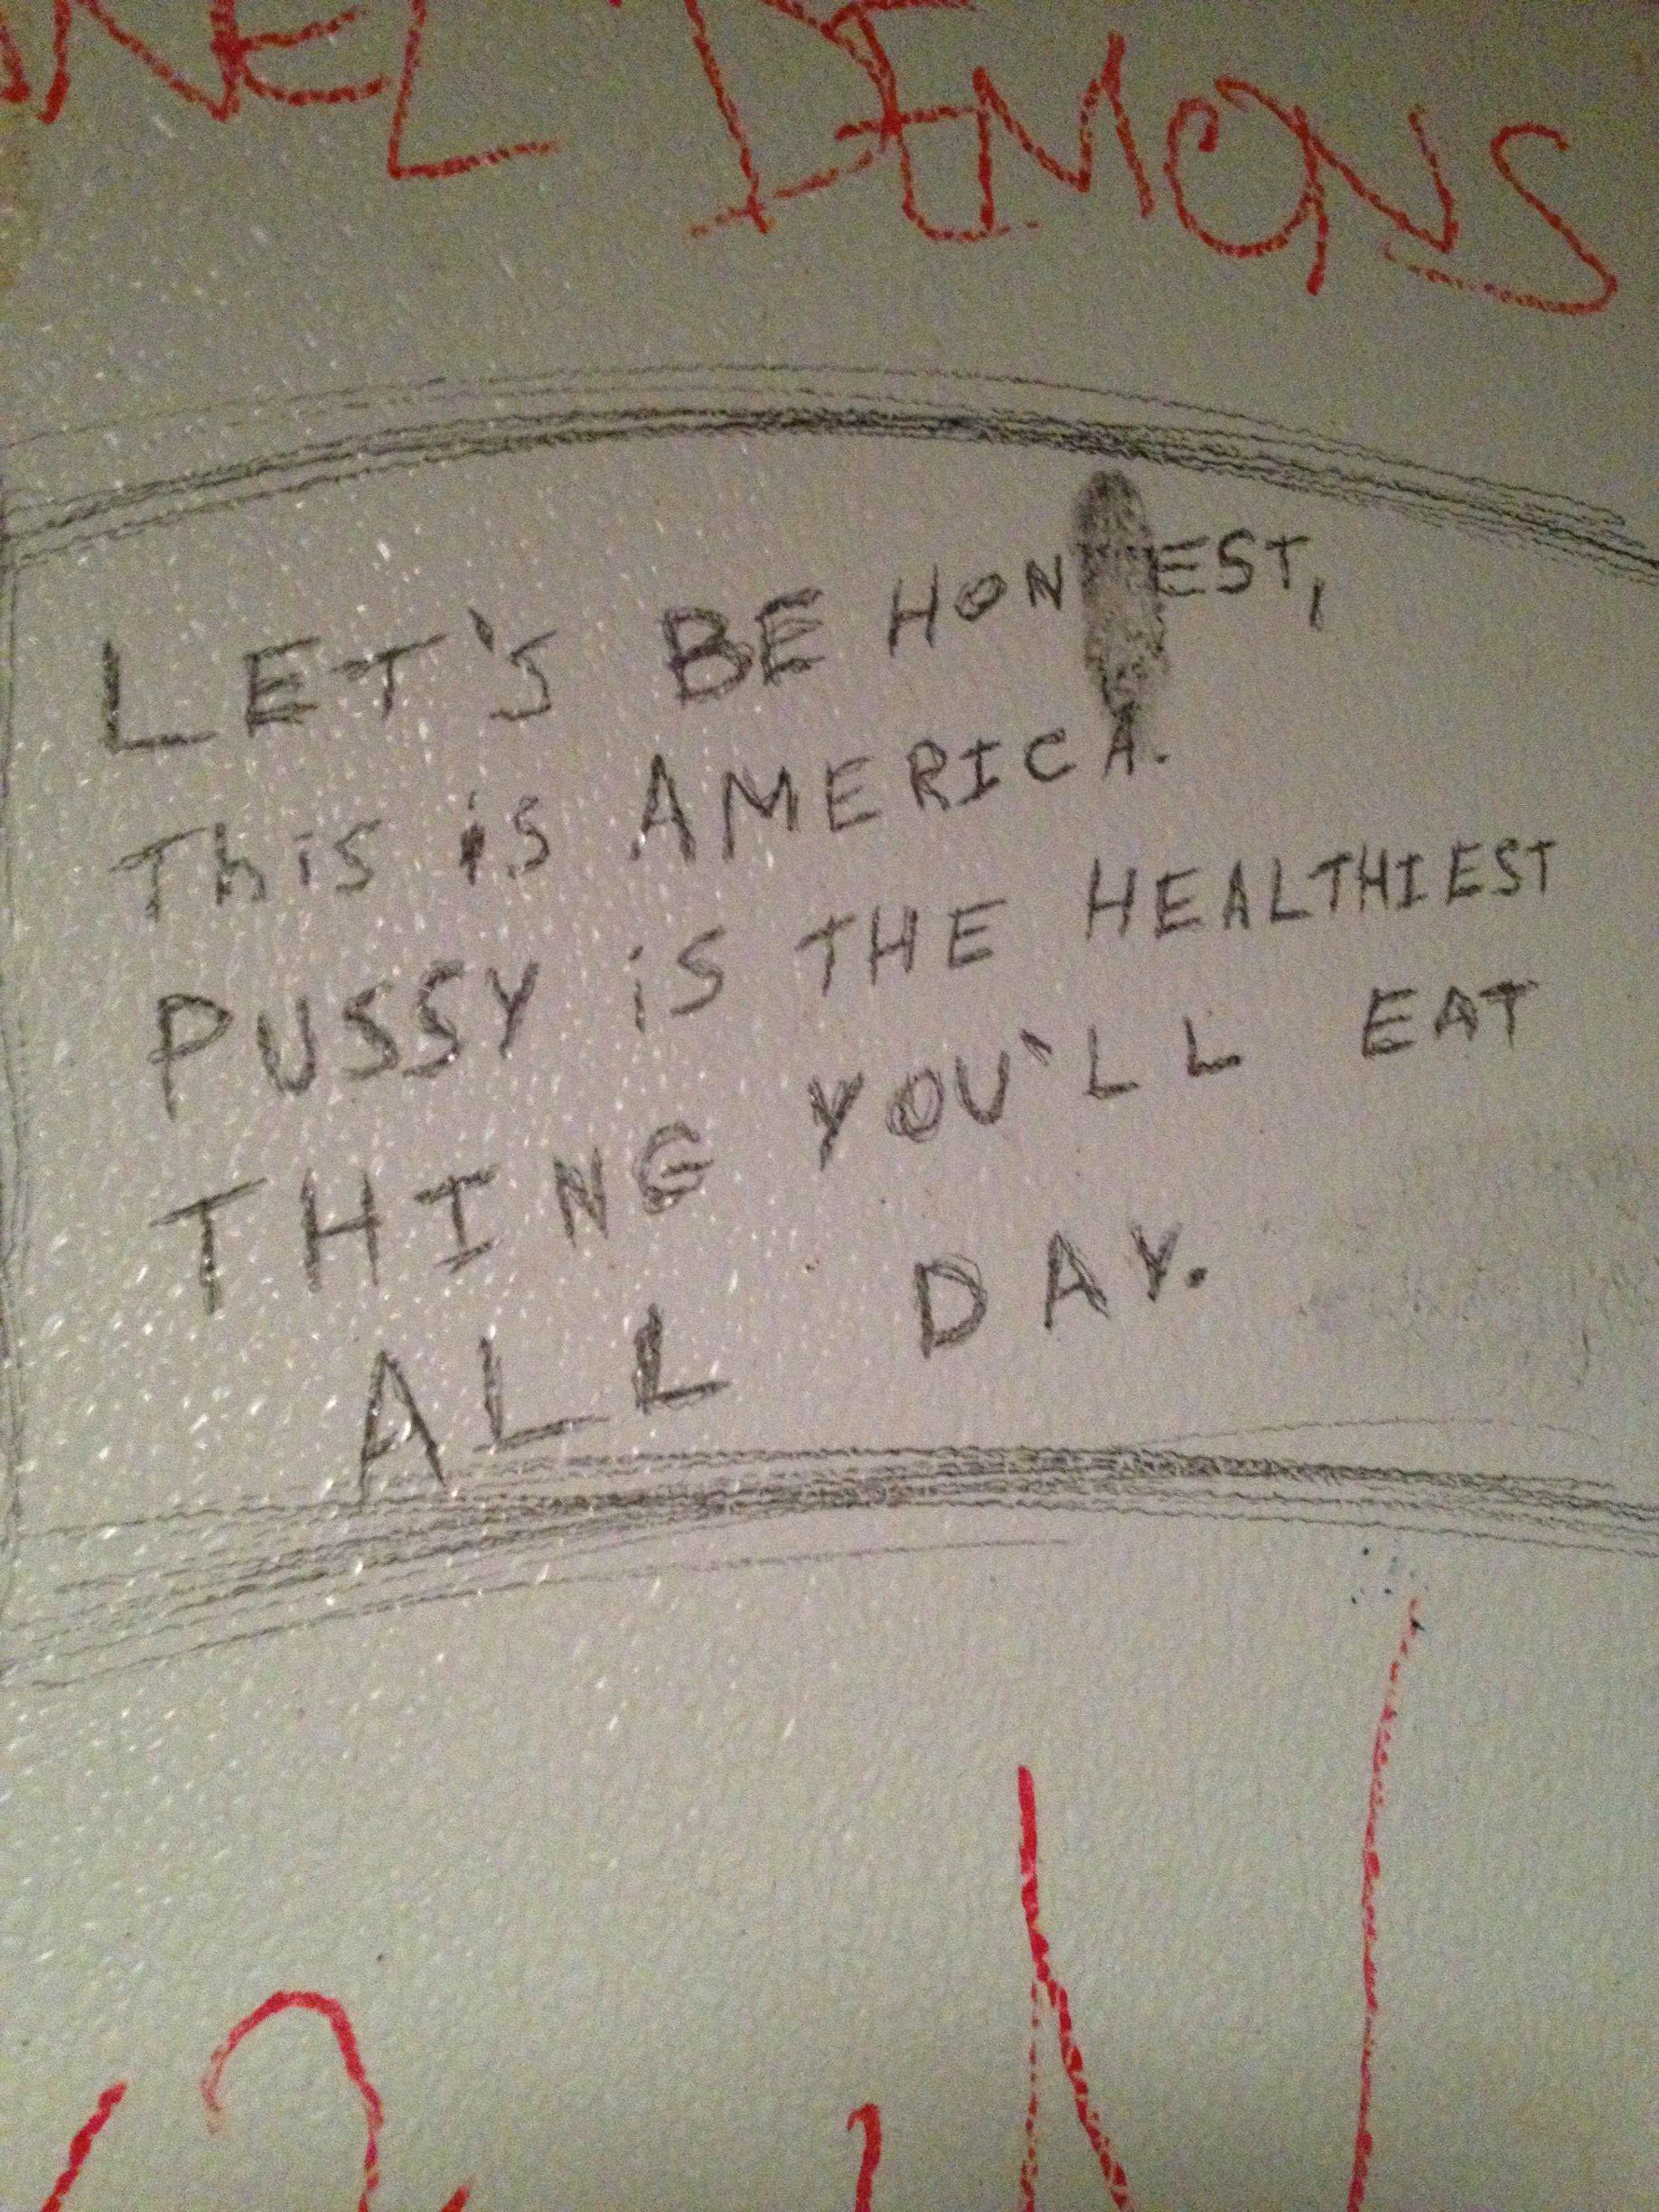 DEMONS
LET'S BE HONEST,
This is AMERICA.
PUSSY iS THE HEALTHIEST
THING YOU'LL EAT
ALL DAY.